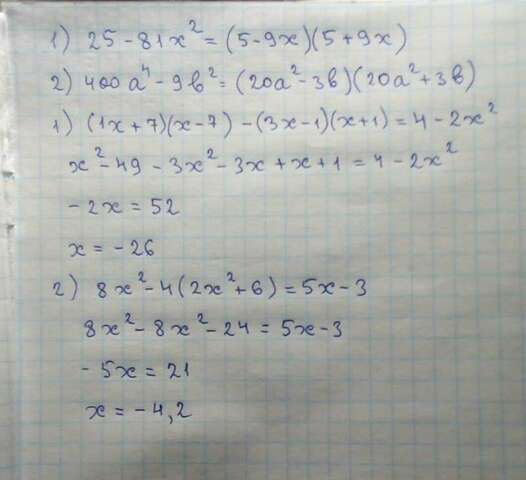 1) 25 - 81x² = (5-9x)(5+9x)
2) 400a⁴ - 9b² = (20a² - 3b)(20a² + 3b)
1) (1x+7)(x-7) - (3x-1)(x+1) = 4 - 2x²
x² - 49 - 3x² - 3x + x + 1 = 4 - 2x²
-2x = 52
x = -26
2) 8x² - 4(2x² + 6) = 5x - 3
8x² - 8x² - 24 = 5x - 3
-5x = 21
x = -4,2